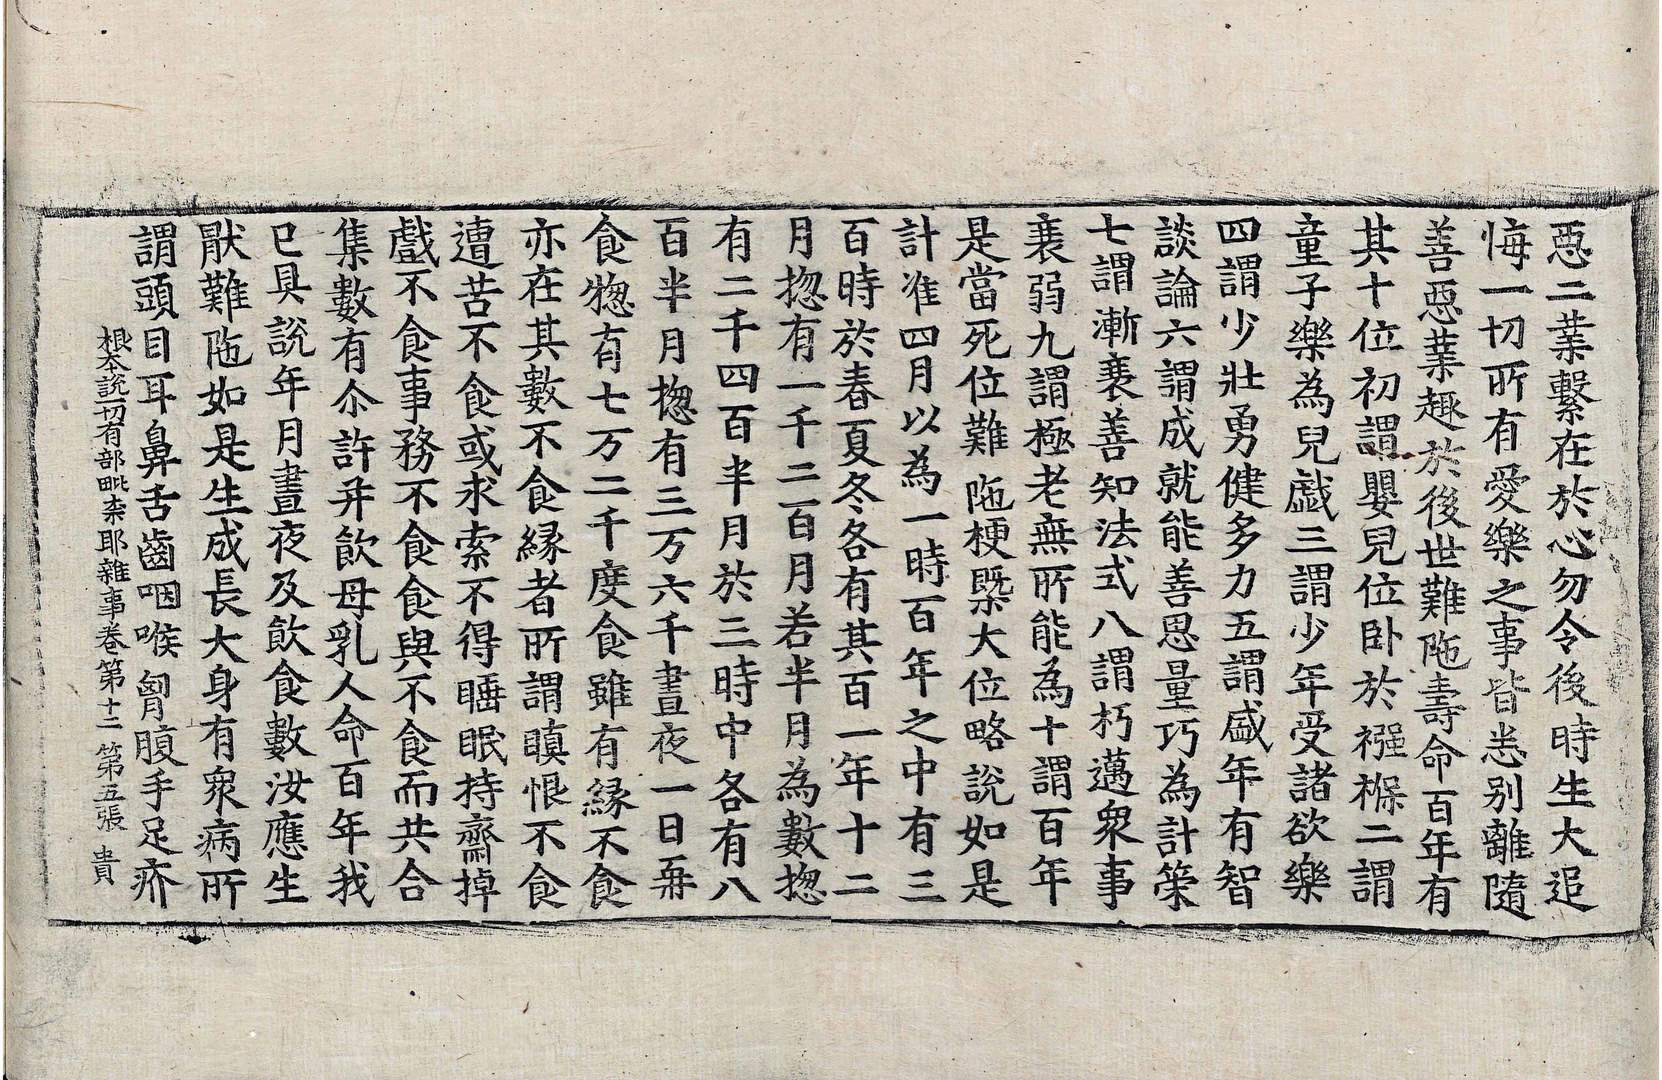 惡二業繫在於心勿令後時生大追
悔一切所有愛樂之事皆悉別離隨
善惡業趣於後世難陁壽命百年有
其十位初謂嬰兒位卧於襁褓二謂
童子樂為兒戲三謂少年受諸欲樂
四謂少壯勇健多力五謂盛年有智
談論六謂成就能善思量巧為計策
七謂漸衰善知法式八謂朽邁衆事
衰弱九謂極老無所能為十謂百年
是當死位難陁梗槩大位略說如是
計准四月以為一時百年之中有三
百時於春夏冬各有其百一年十二
月惣有一千二百月若半月為數惣
有二千四百半月於三時中各有八
百半月惣有三万六千晝夜一日再
食惣有七万二千度食雖有緣不食
亦在其數不食緣者所謂瞋恨不食
遭苦不食或求索不得睡眠持齋掉
戲不食事務不食食與不食而共合
集數有尒許并飲母乳人命百年我
已具說年月晝夜及飲食數汝應生
猒難陁如是生成長大身有衆病所
謂頭目耳鼻舌齒咽喉匈腹手足疥
根本說一切有部毗柰耶雜事卷第十二 第五張 貴